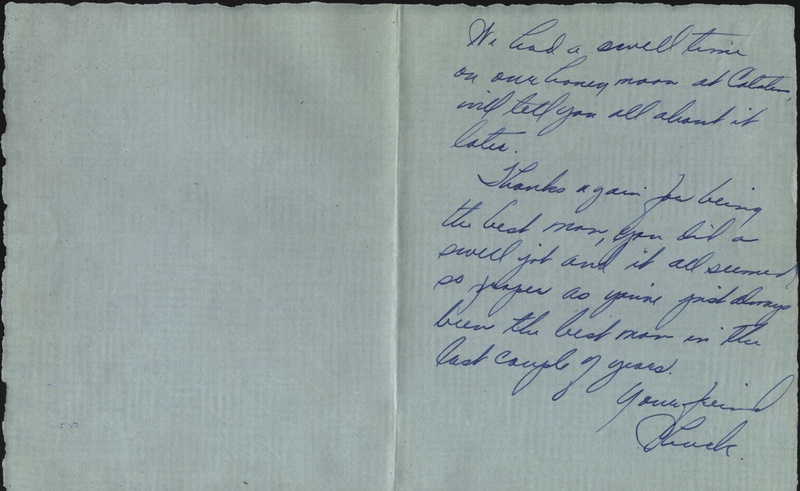 We had a swell time
on our honey moon at
will tell you all about it
later.
Thanks again for being
the best man, you did a
swell job and it all seemed
so proper as you've just always
been the best man in the
last couple of years.
Your friend
Chuck.